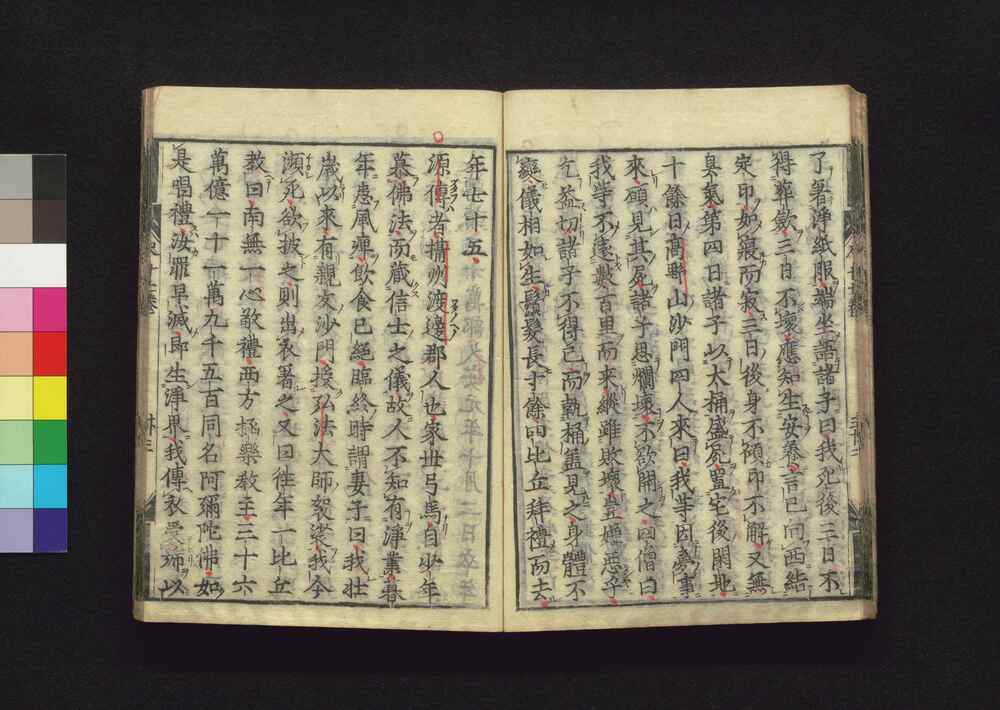 了著淨紙服端坐語諸子曰我死後三日不
得葬歛三日不壞應知生安養言已向西結
定印如寢而寂三日後身不傾印不解又無
臭氣第四日諸子以大桶盛屍置宅後閑地
十餘日高野山沙門四人來曰我等因夢事
來願見其屍諸子恐爛壞不欲開之四僧曰
我等不遠數百里而來縱雖敗壞豈嫌惡乎
乞益切諸子不得已而執桶蓋見之身體不
變儀相如生鬚髮長寸餘四比丘拜禮而去
年七十五
源傳者攝州渡邊郡人也家世弓馬自少年
慕佛法而藏信士之儀故人不知有淨業暮
年患風痺飲食已絕臨終時謂妻子曰我壯
歲以來有親友沙門授弘法大師袈裟我今
瀕死欲披之則出衣著之又曰往年一比丘
教曰南無一心敬禮西方極樂教主三十六
萬億一十一萬九千五百同名阿彌陀佛如
是唱禮汝罪早滅即生淨界我傳衣受師以